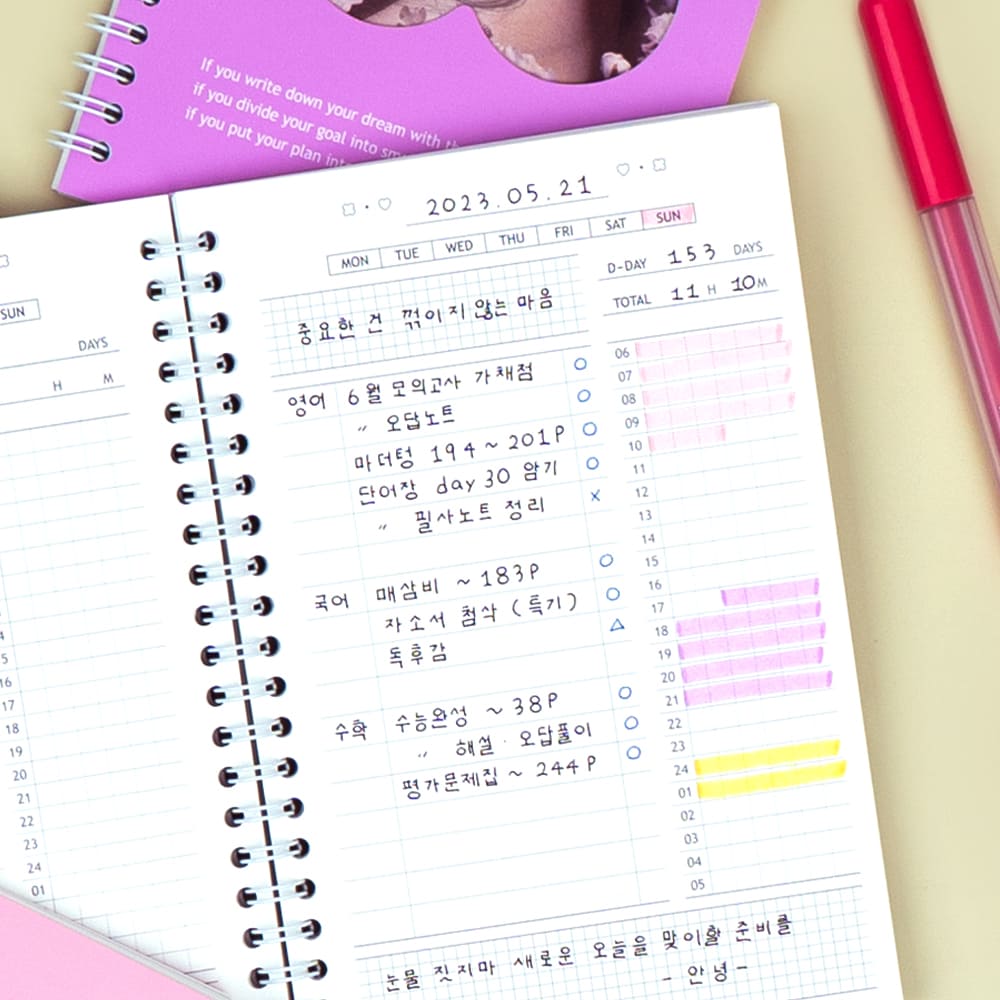 If you write down your dream with
if you divide your goal into
if you put your plan
2023.05.21
MON TUE WED THU FRI SAT SUN
D-DAY 153 DAYS
TOTAL 11 H 10 M
중요한 건 꺾이지 않는 마음
영어 6월 모의고사 가채점 ○
〃 오답노트 ○
마더텅 194 ~ 201P ○
단어장 day 30 암기 ○
〃 필사노트 정리 ×
국어 매삼비 ~ 183P ○
자소서 첨삭 (특기) ○
독후감 △
수학 수능완성 ~ 38P ○
〃 해설·오답풀이 ○
평가문제집 ~ 244P ○
06
07
08
09
10
11
12
13
14
15
16
17
18
19
20
21
22
23
24
01
02
03
04
05
눈물 짓지마 새로운 오늘을 맞이할 준비를
- 안녕 -
SUN
DAYS
H M
16
17
18
19
20
21
22
23
24
01